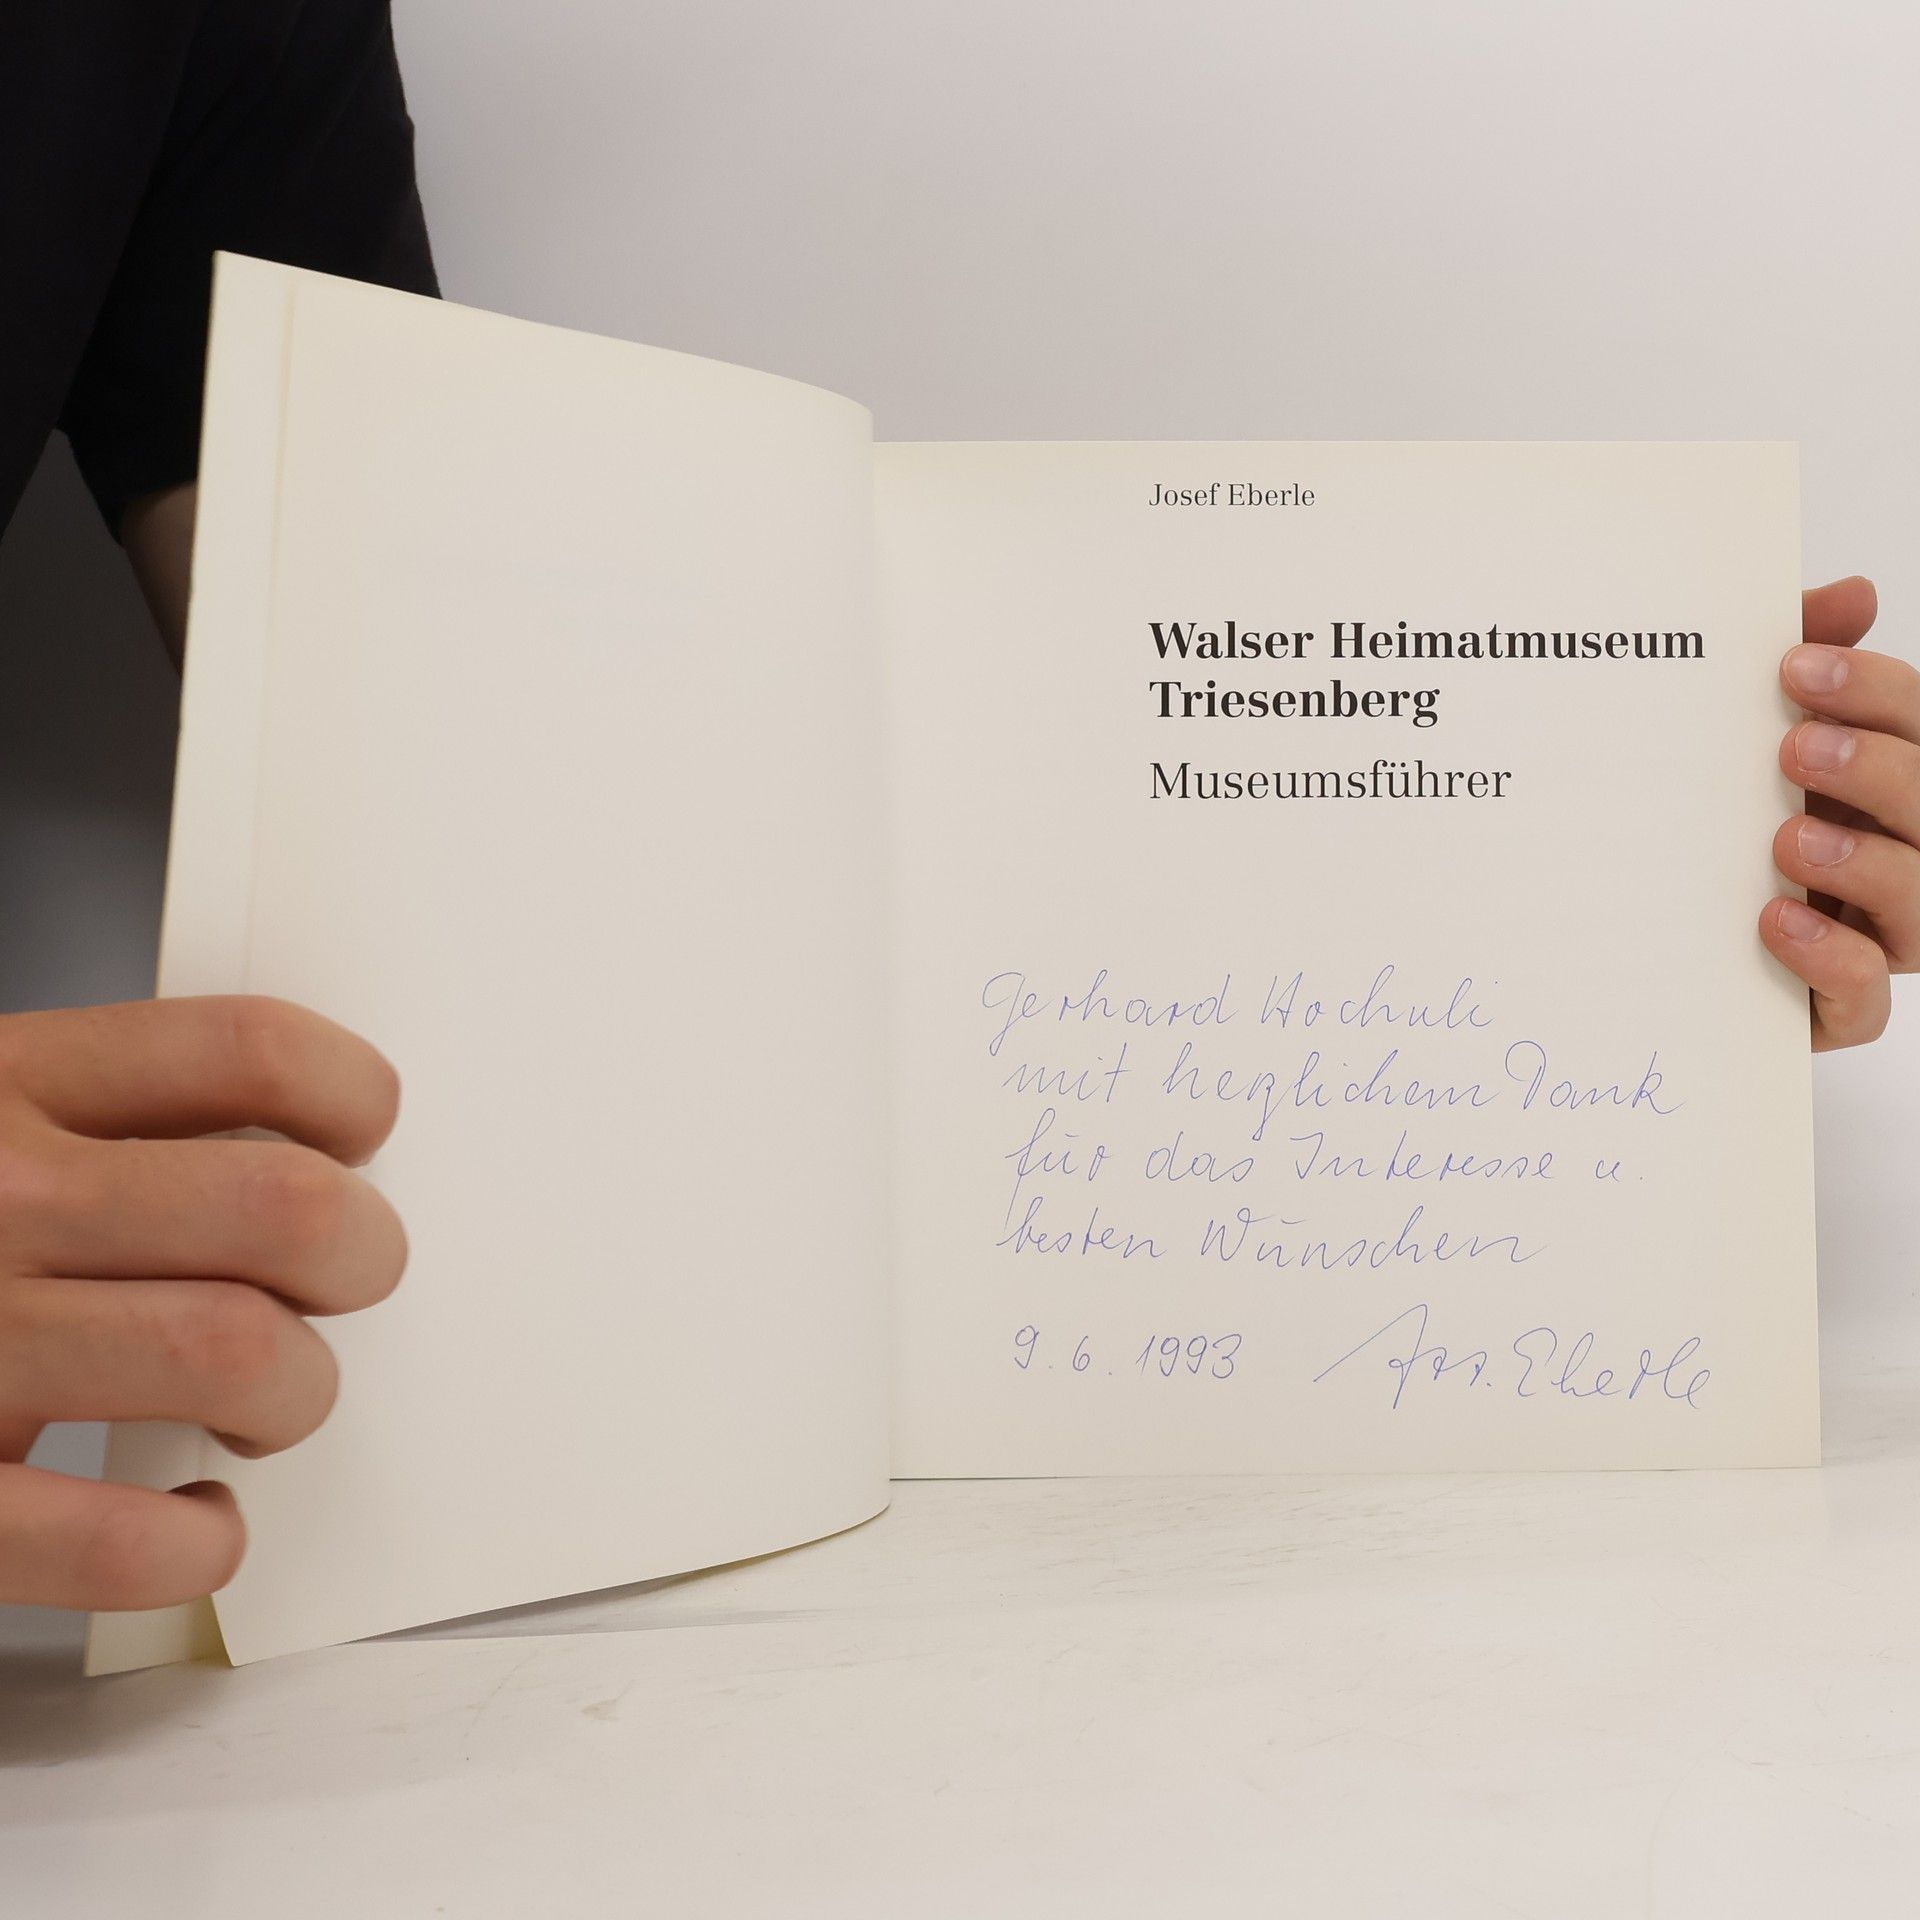 Josef Eberle
Walser Heimatmuseum
Triesenberg
Museumsführer
Gerhard Hochuli
mit herzlichem Dank
für das Interesse u.
besten Wünschen
9.6.1993 Jos. Eberle